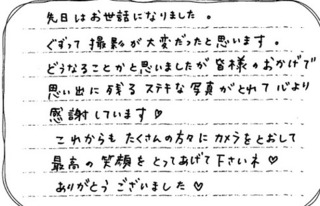 先日はお世話になりました。
ぐずって撮影が大変だったと思います。
どうなることかと思いましたが皆様のおかげで
思い出に残るステキな写真がとれて心より
感謝しています♡
これからもたくさんの方々にカメラをとおして
最高の笑顔をとってあげて下さいネ♡
ありがとうございました♡